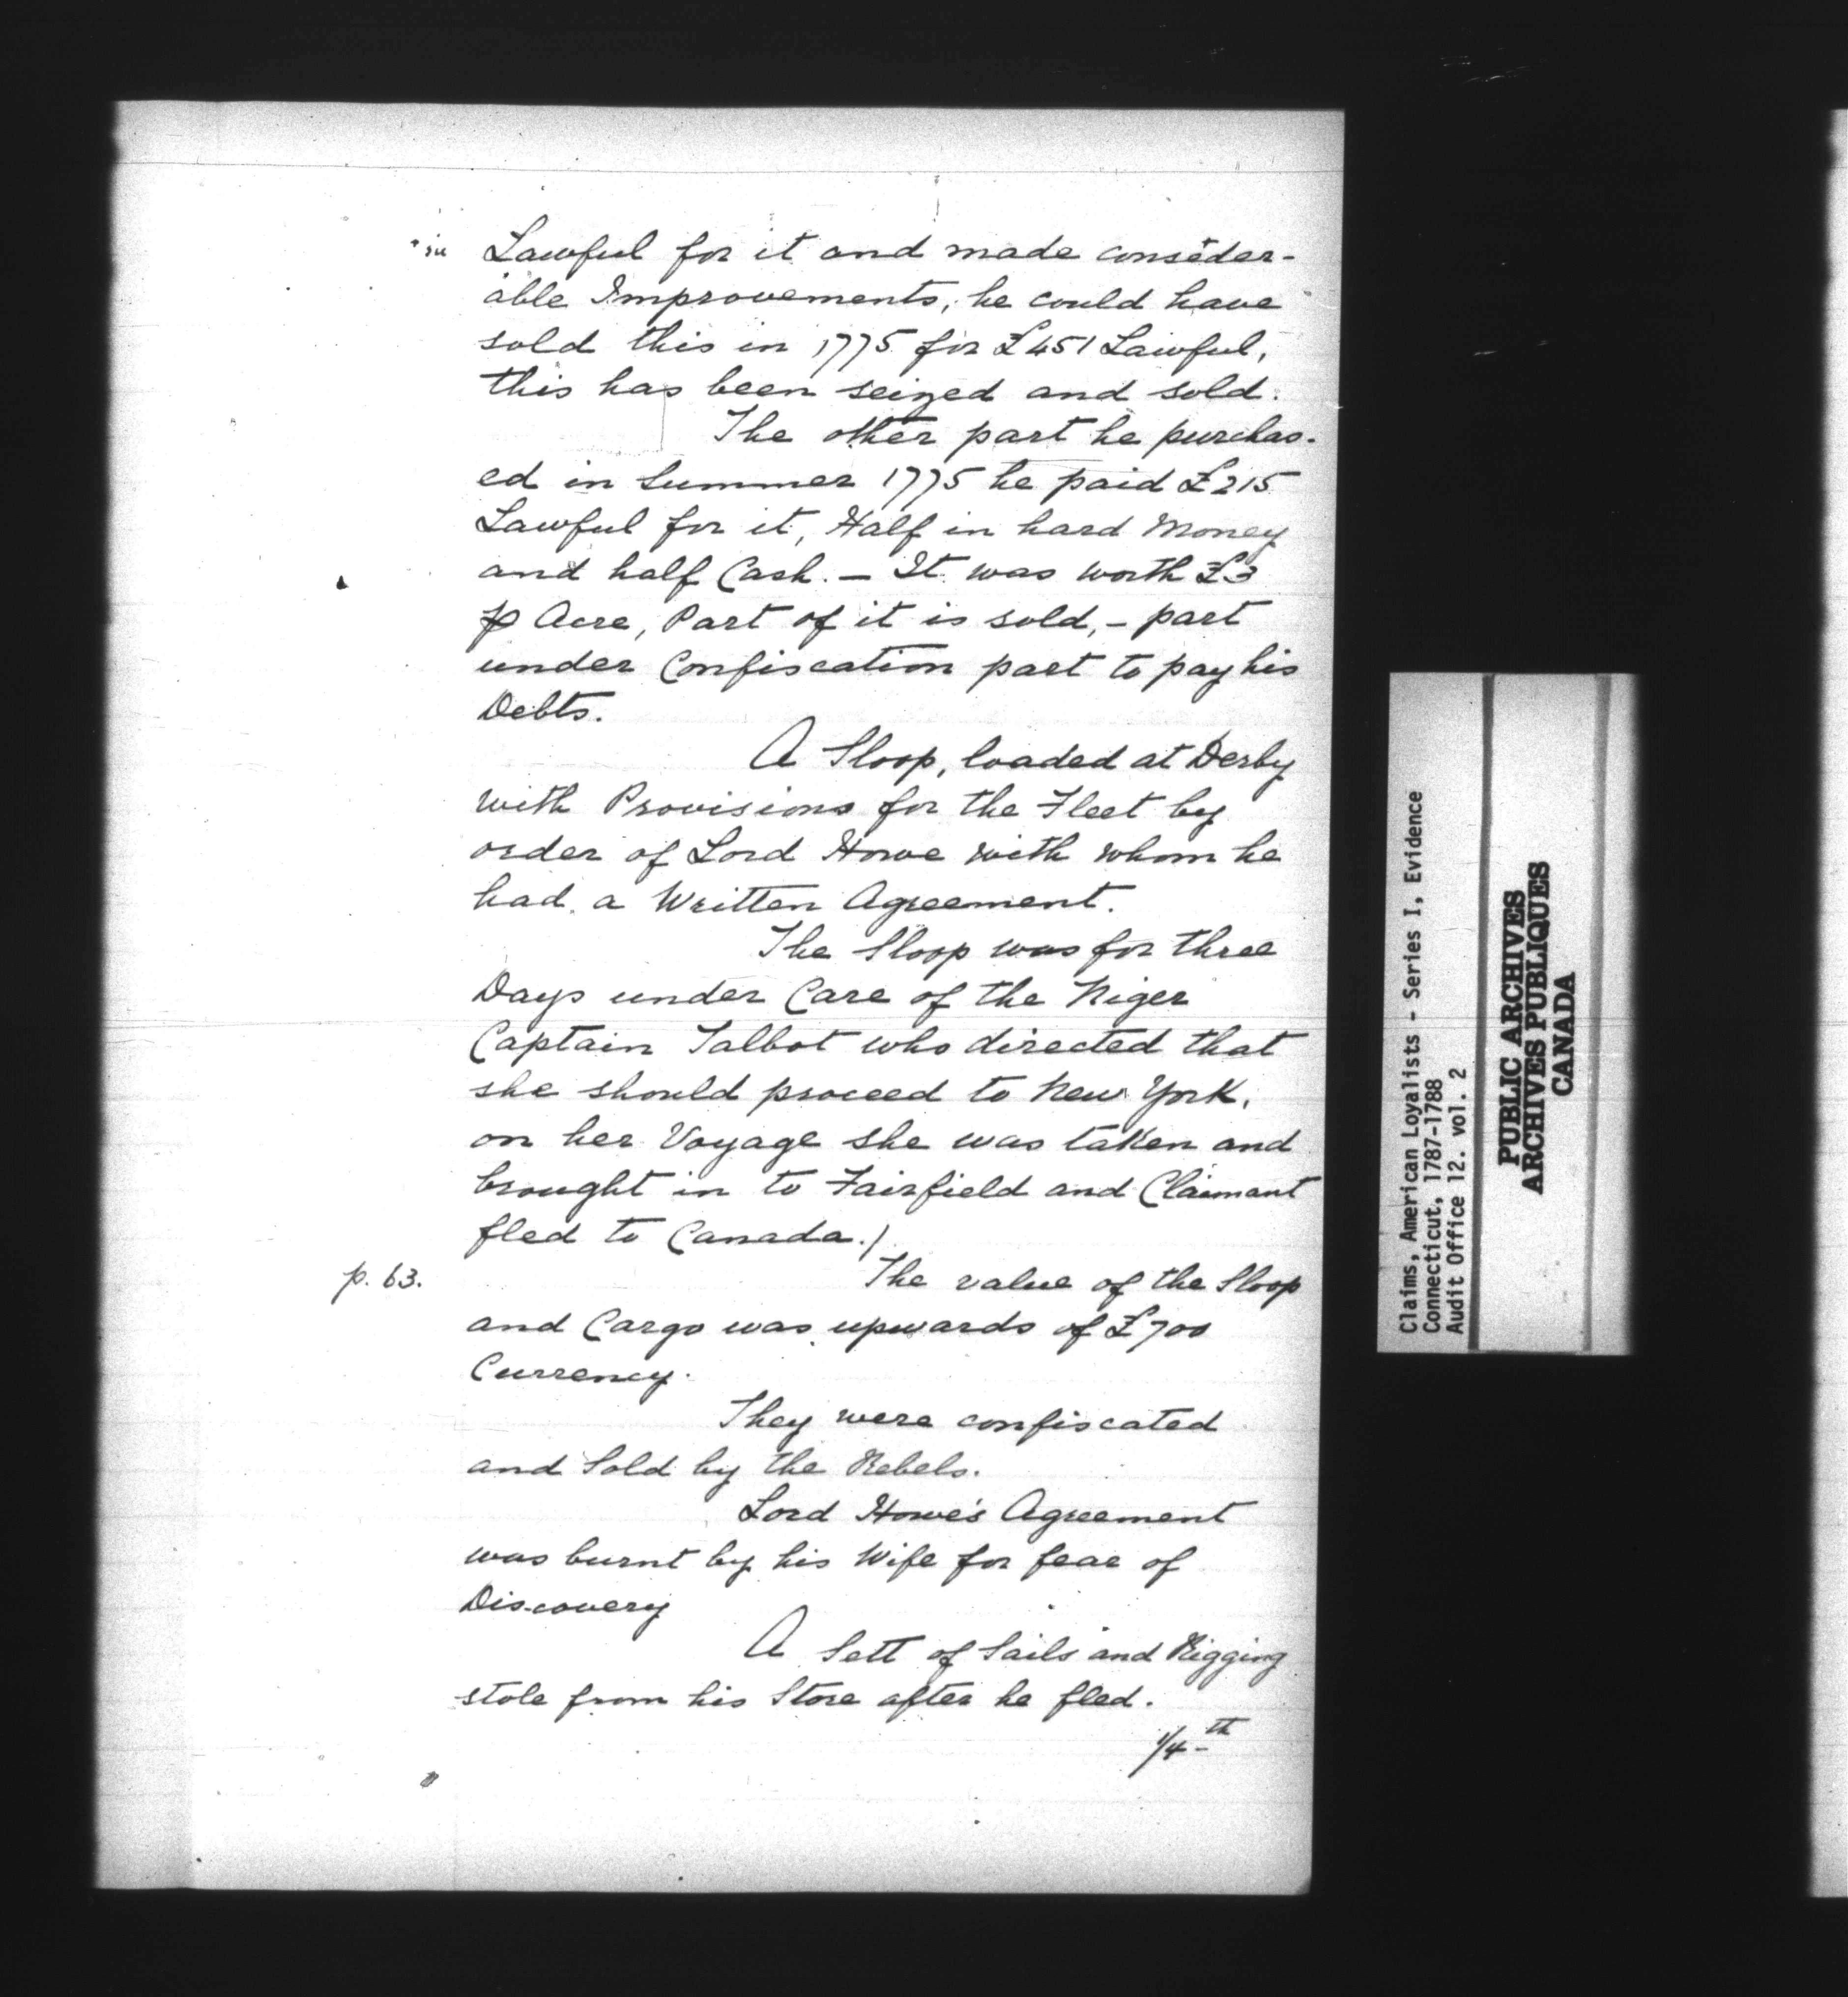 in Lawful for it and made consider-
able Improvements, he could have
sold this in 1775 for £451 Lawful,
this has been seized and sold.
The other part he purchas-
ed in Summer 1775 he paid £215
Lawful for it, Half in hard Money
and half Cash. — It was worth £3
⅌ Acre, Part of it is sold, - part
under Confiscation part to pay his
Debts.
A Sloop, loaded at Derby
with Provisions for the Fleet by
order of Lord Howe with whom he
had a Written Agreement.
The Sloop was for three
Days under Care of the Niger
Captain Talbot who directed that
she should proceed to New York,
on her Voyage she was taken and
brought in to Fairfield and Claimant
fled to Canada.)
p. 63. The value of the Sloop
and Cargo was upwards of £700
Currency.
They were confiscated
and Sold by the Rebels.
Lord Howe's Agreement
was burnt by his Wife for fear of
Discovery
A Sett of Sails and Rigging
stole from his Store after he fled.
1/4th
Claims, American Loyalists - Series I, Evidence
Connecticut, 1787-1788
Audit Office 12. vol. 2
PUBLIC ARCHIVES
ARCHIVES PUBLIQUES
CANADA